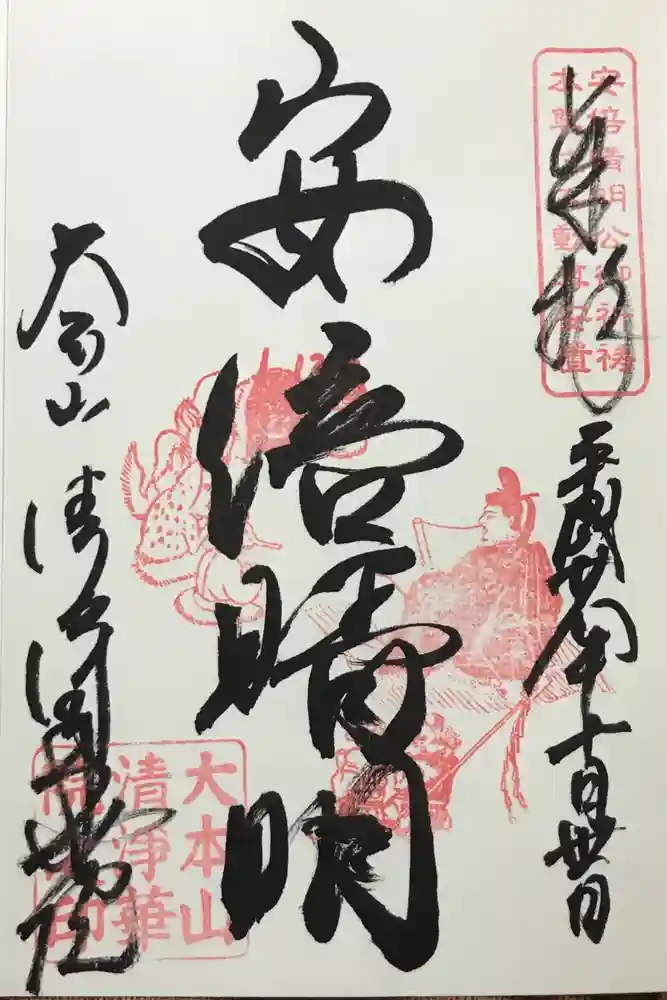 奉拝
安倍晴明公御祈祷
動尊安置
平成
十月
安倍晴明
大本山 清浄華院
大本山
清浄華
院之印